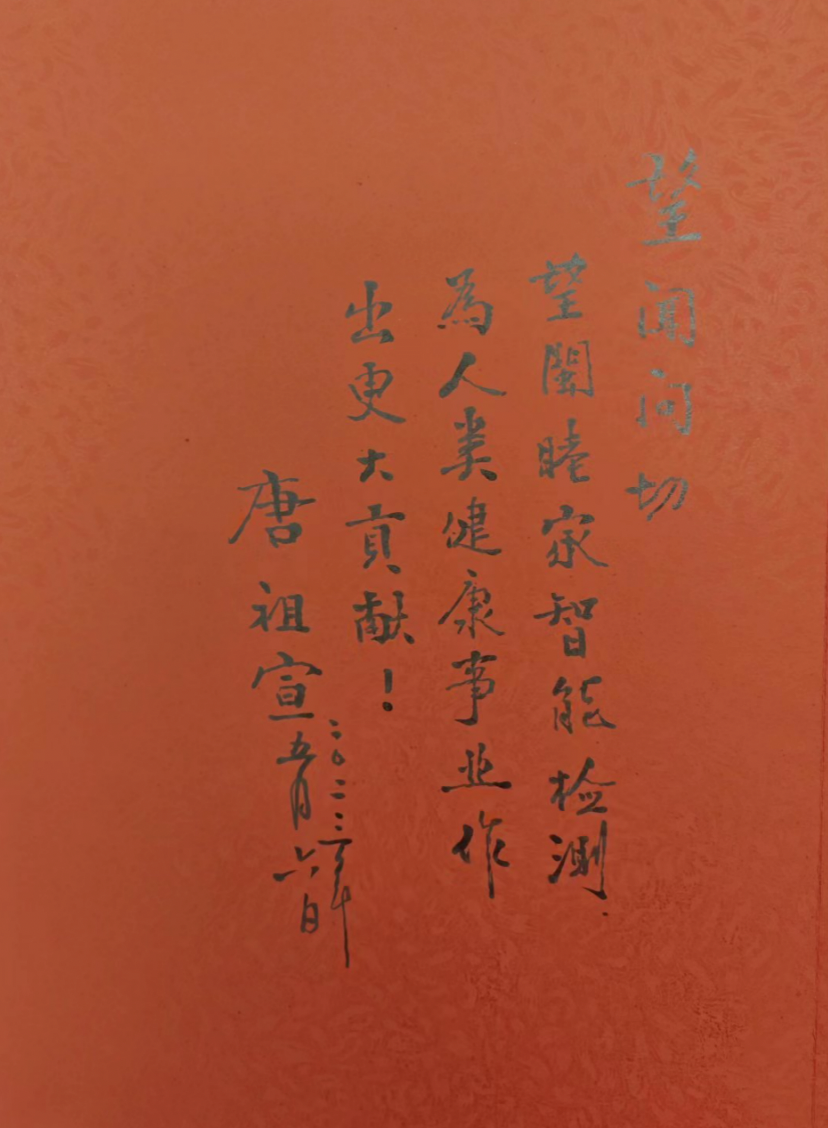 望闻问切
望闔睦家智能检测.
為人类健康事业作
出更大贡献！
唐祖宣
二〇二三年
五月六日